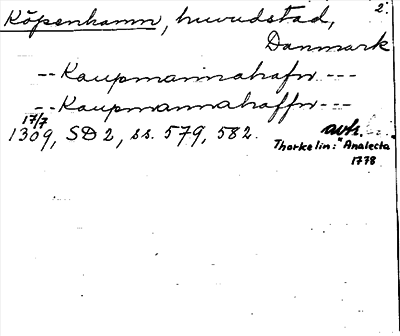 2.
Köpenhamn, huvudstad,
Danmark
--Kaupmannahafn---
--Kaupmannahaffn---
17/7
1309, SD 2, ss. 579, 582.
avtr.
Thorkelin: "Analecta
1778